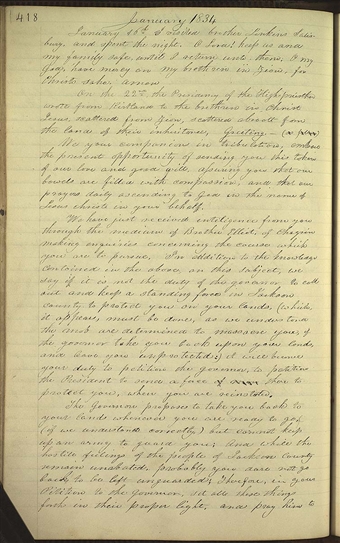 418
January 1834
January 16th, I visited brother Jenkins Salis-
bury, and spent the night. O Lord! keep us and
my family safe, until I return unto them; O my
God, have mercy on my brethren in Zion, for
Christ's sake. Amen.
On the 22nd the Presidency of the High priesthood
wrote from Kirtland to the brethren in Christ
Jesus, scattered from Zion, scattered abroad from
the land of their inheritance, Greeting:—
We your companions in tribulation, embrace
the present opportunity of sending you this token
of our love and good will, assuring you that our
bowels are filled with compassion, and that our
prayers daily ascending to God in the name of
Jesus Christ in your behalf.
We have just received intelligence from you
through the medium of Brother Elliot, of Chagrin
making enquiries concerning the course which
you are to pursue. In addition to the knowledge
contained in the above, on this subject, we
say if it is not the duty of the governor to call
out and keep a standing force in Jackson
county to protect you on your lands, (which,
it appears must be done, as we understand
the mob are determined to massacre you, if
the governor take you back upon your lands
and leave you unprotected;) it will become
your duty to petition the governor, to petition
the President to send a force there to
protect you, when you are reinstated.
The Governor proposes to take you back to
your lands whenever you are ready to go,
(if we understand correctly) but cannot keep
up an army to guard you; and while the
hostile feelings of the people of Jackson County
remain unabated, probably you dare not go
back to be left unguarded; Therefore, in your
Petition to the Governor, set all these things
forth in their proper light, and pray him to